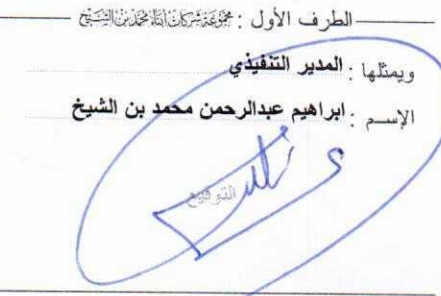 الطرف الأول : مجموعة شركات أبناء محمد بن الشيخ
ويمثلها : المدير التنفيذي
الإســم : ابراهيم عبدالرحمن محمد بن الشيخ
التوقيع